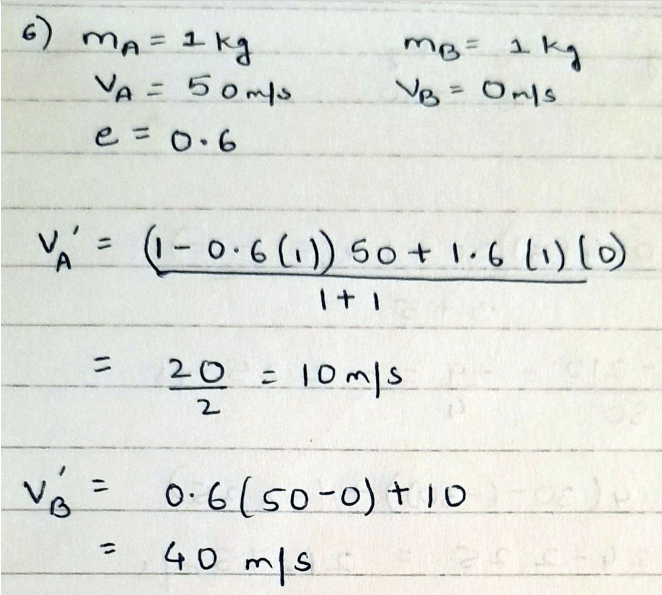 6) mA = 1 kg mB = 1 kg
VA = 50 m/s VB = 0 m/s
e = 0.6
VA' = (1 - 0.6(1)) 50 + 1.6 (1)(0)
1 + 1
= 20/2 = 10 m/s
VB' = 0.6(50-0) + 10
= 40 m/s